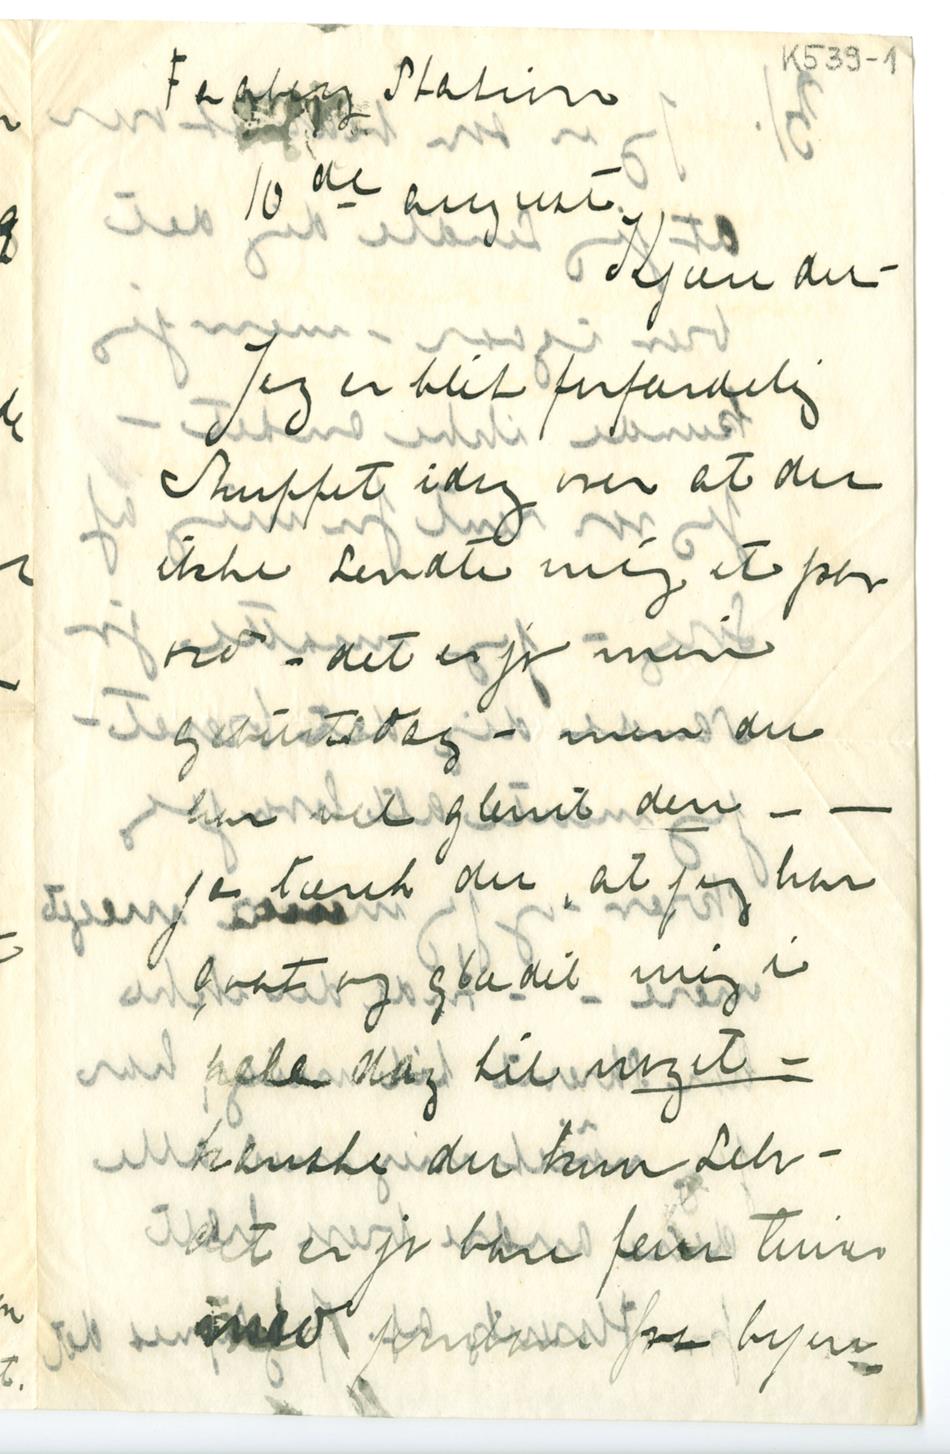 K539-1
Faaberg Station
10 de august.
Kjære du-
Jeg er blit forfærdelig
skuffet idag over at du
ikke sendte mig et par
ord - det er jo min
geburtsdag - men du
har vel glemt den - -
ja tænk du, at jeg har
gaat og glædet mig i
hele dag til noget -
kanske du kom selv -
det er jo bare fem timer
med fra byen